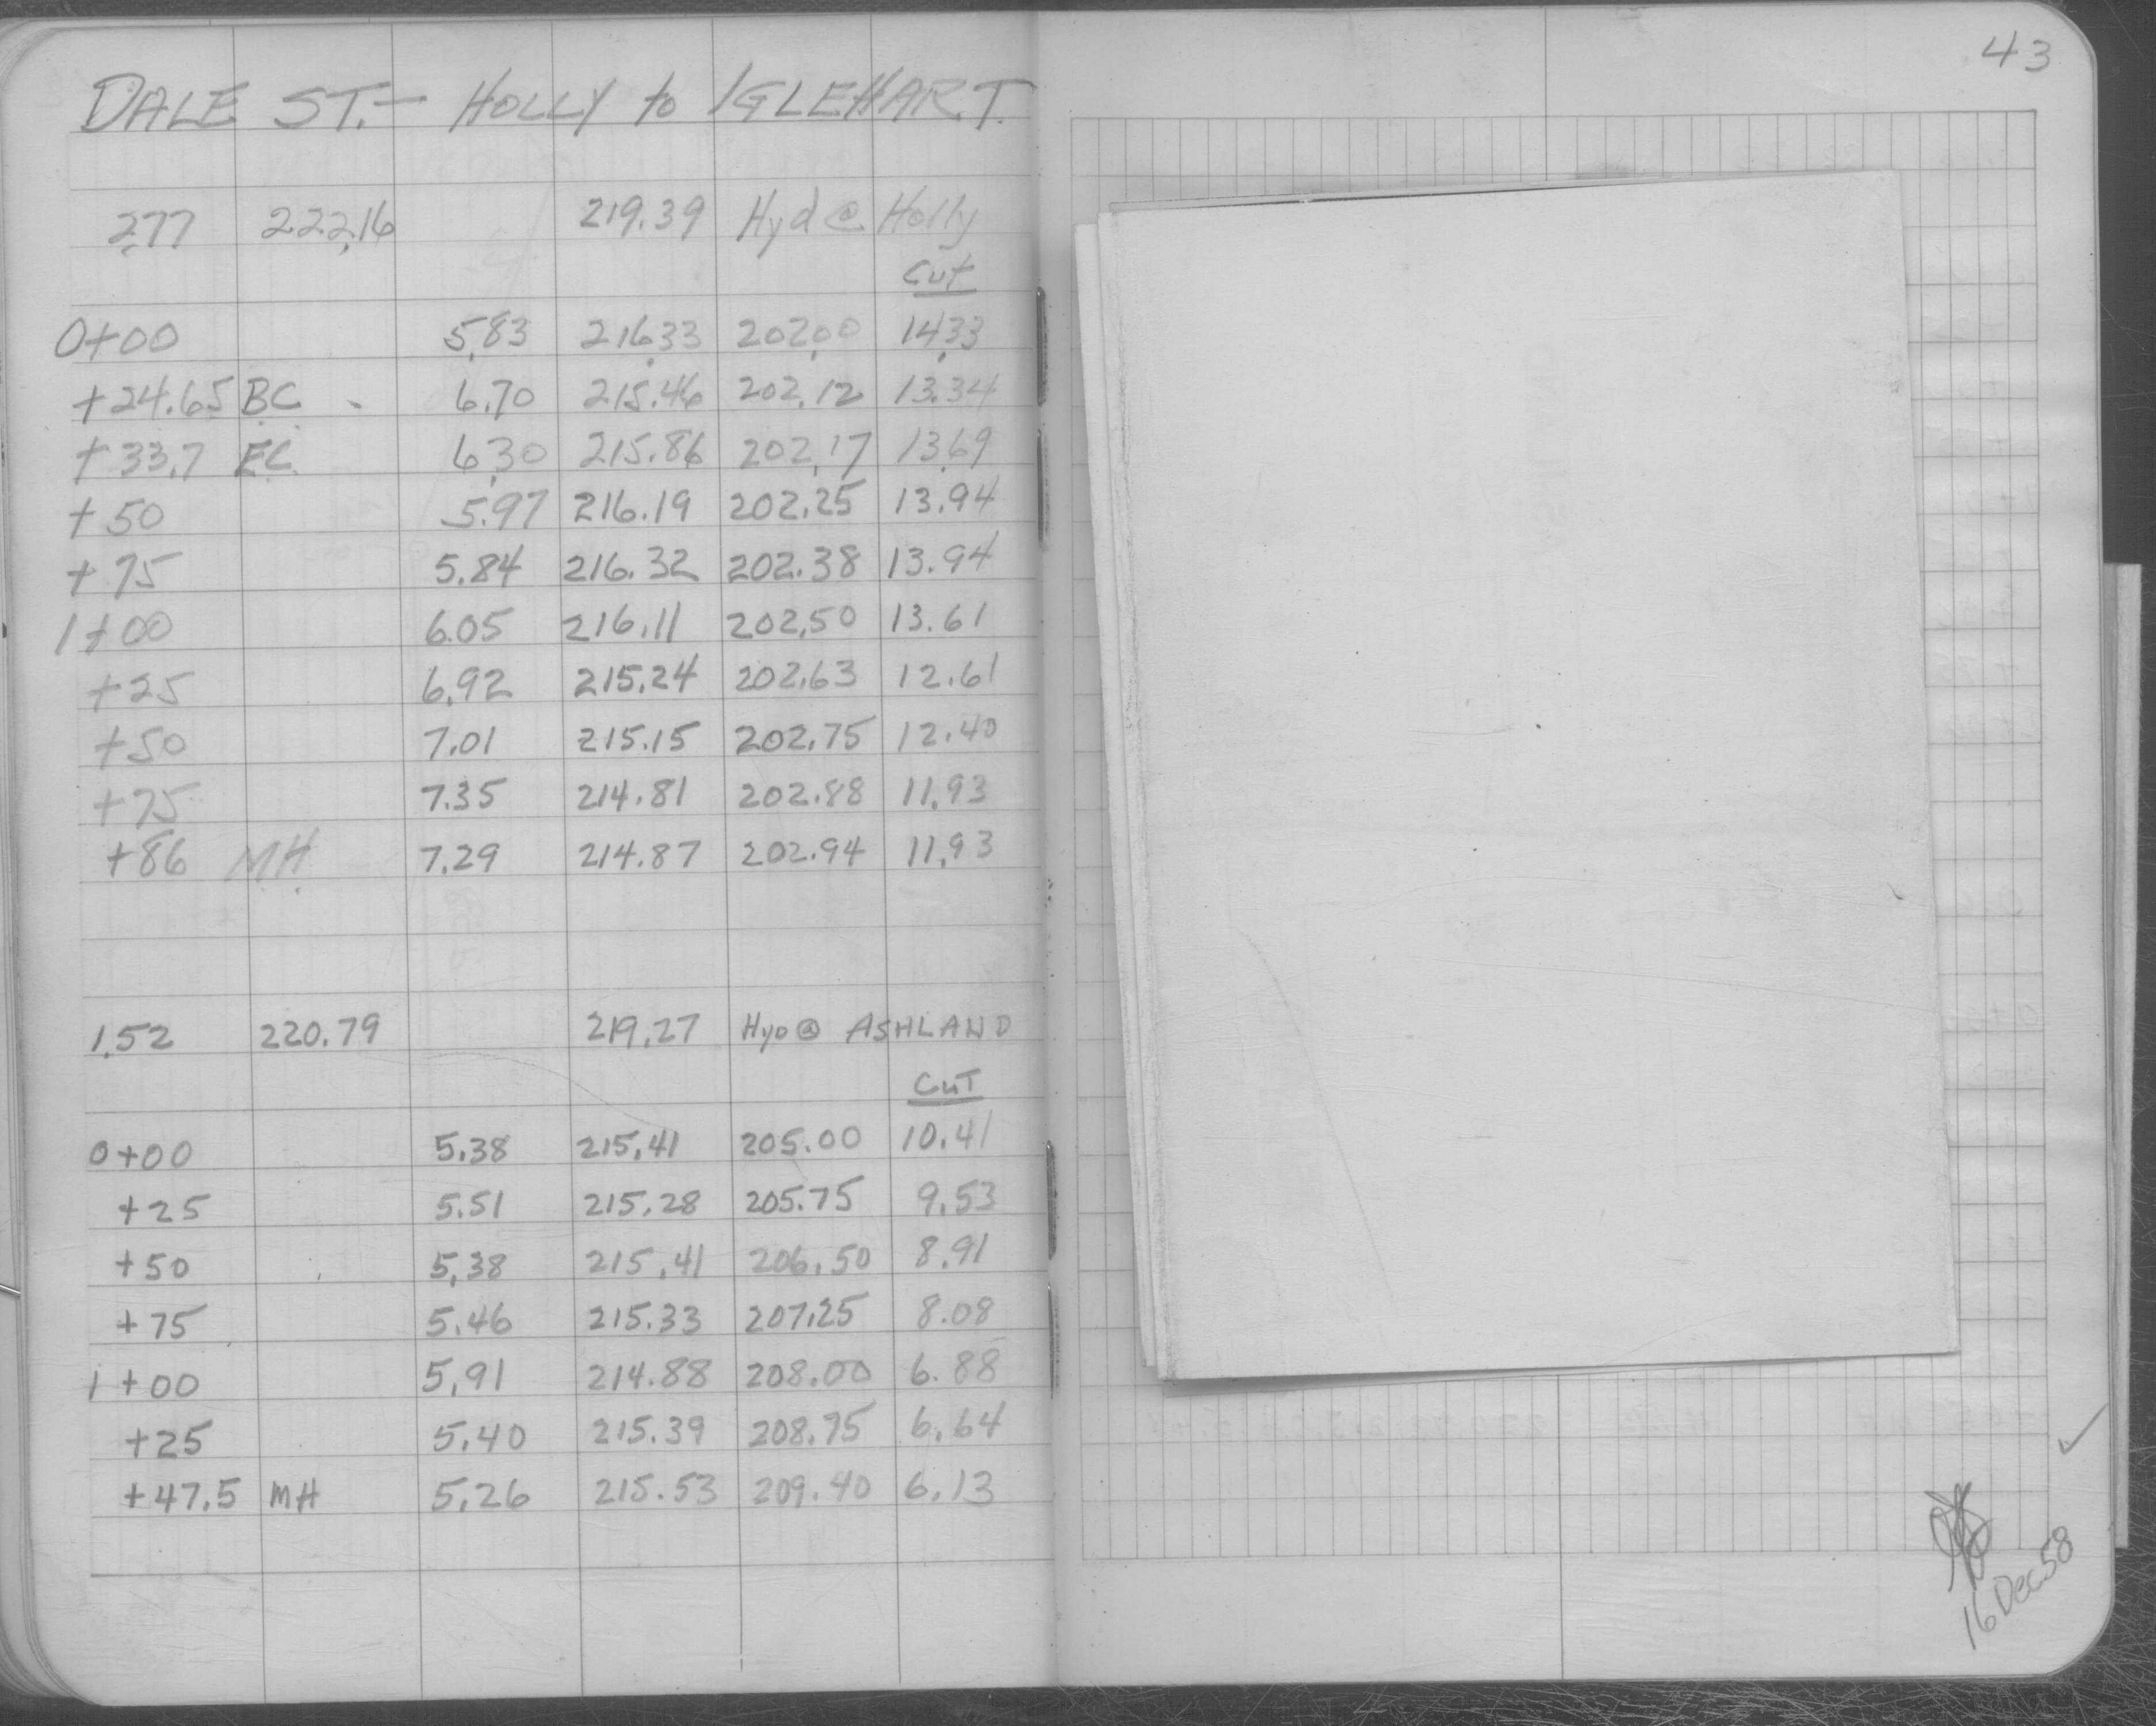 43
DALE ST. - HOLLY to IGLEHART.
2.77 222.16 219.39 Hyd @ Holly
Cut
0+00 5.83 216.33 202.00 14.33
+24.65 BC 6.70 215.46 202.12 13.34
+33.7 EC 6.30 215.86 202.17 13.69
+50 5.97 216.19 202.25 13.94
+75 5.84 216.32 202.38 13.94
1+00 6.05 216.11 202.50 13.61
+25 6.92 215.24 202.63 12.61
+50 7.01 215.15 202.75 12.40
+75 7.35 214.81 202.88 11.93
+86 MH 7.29 214.87 202.94 11.93
1.52 220.79 219.27 HYD @ ASHLAND
CUT
0+00 5.38 215.41 205.00 10.41
+25 5.51 215.28 205.75 9.53
+50 5.38 215.41 206.50 8.91
+75 5.46 215.33 207.25 8.08
1+00 5.91 214.88 208.00 6.88
+25 5.40 215.39 208.75 6.64
+47.5 MH 5.26 215.53 209.40 6.13
16 Dec 58